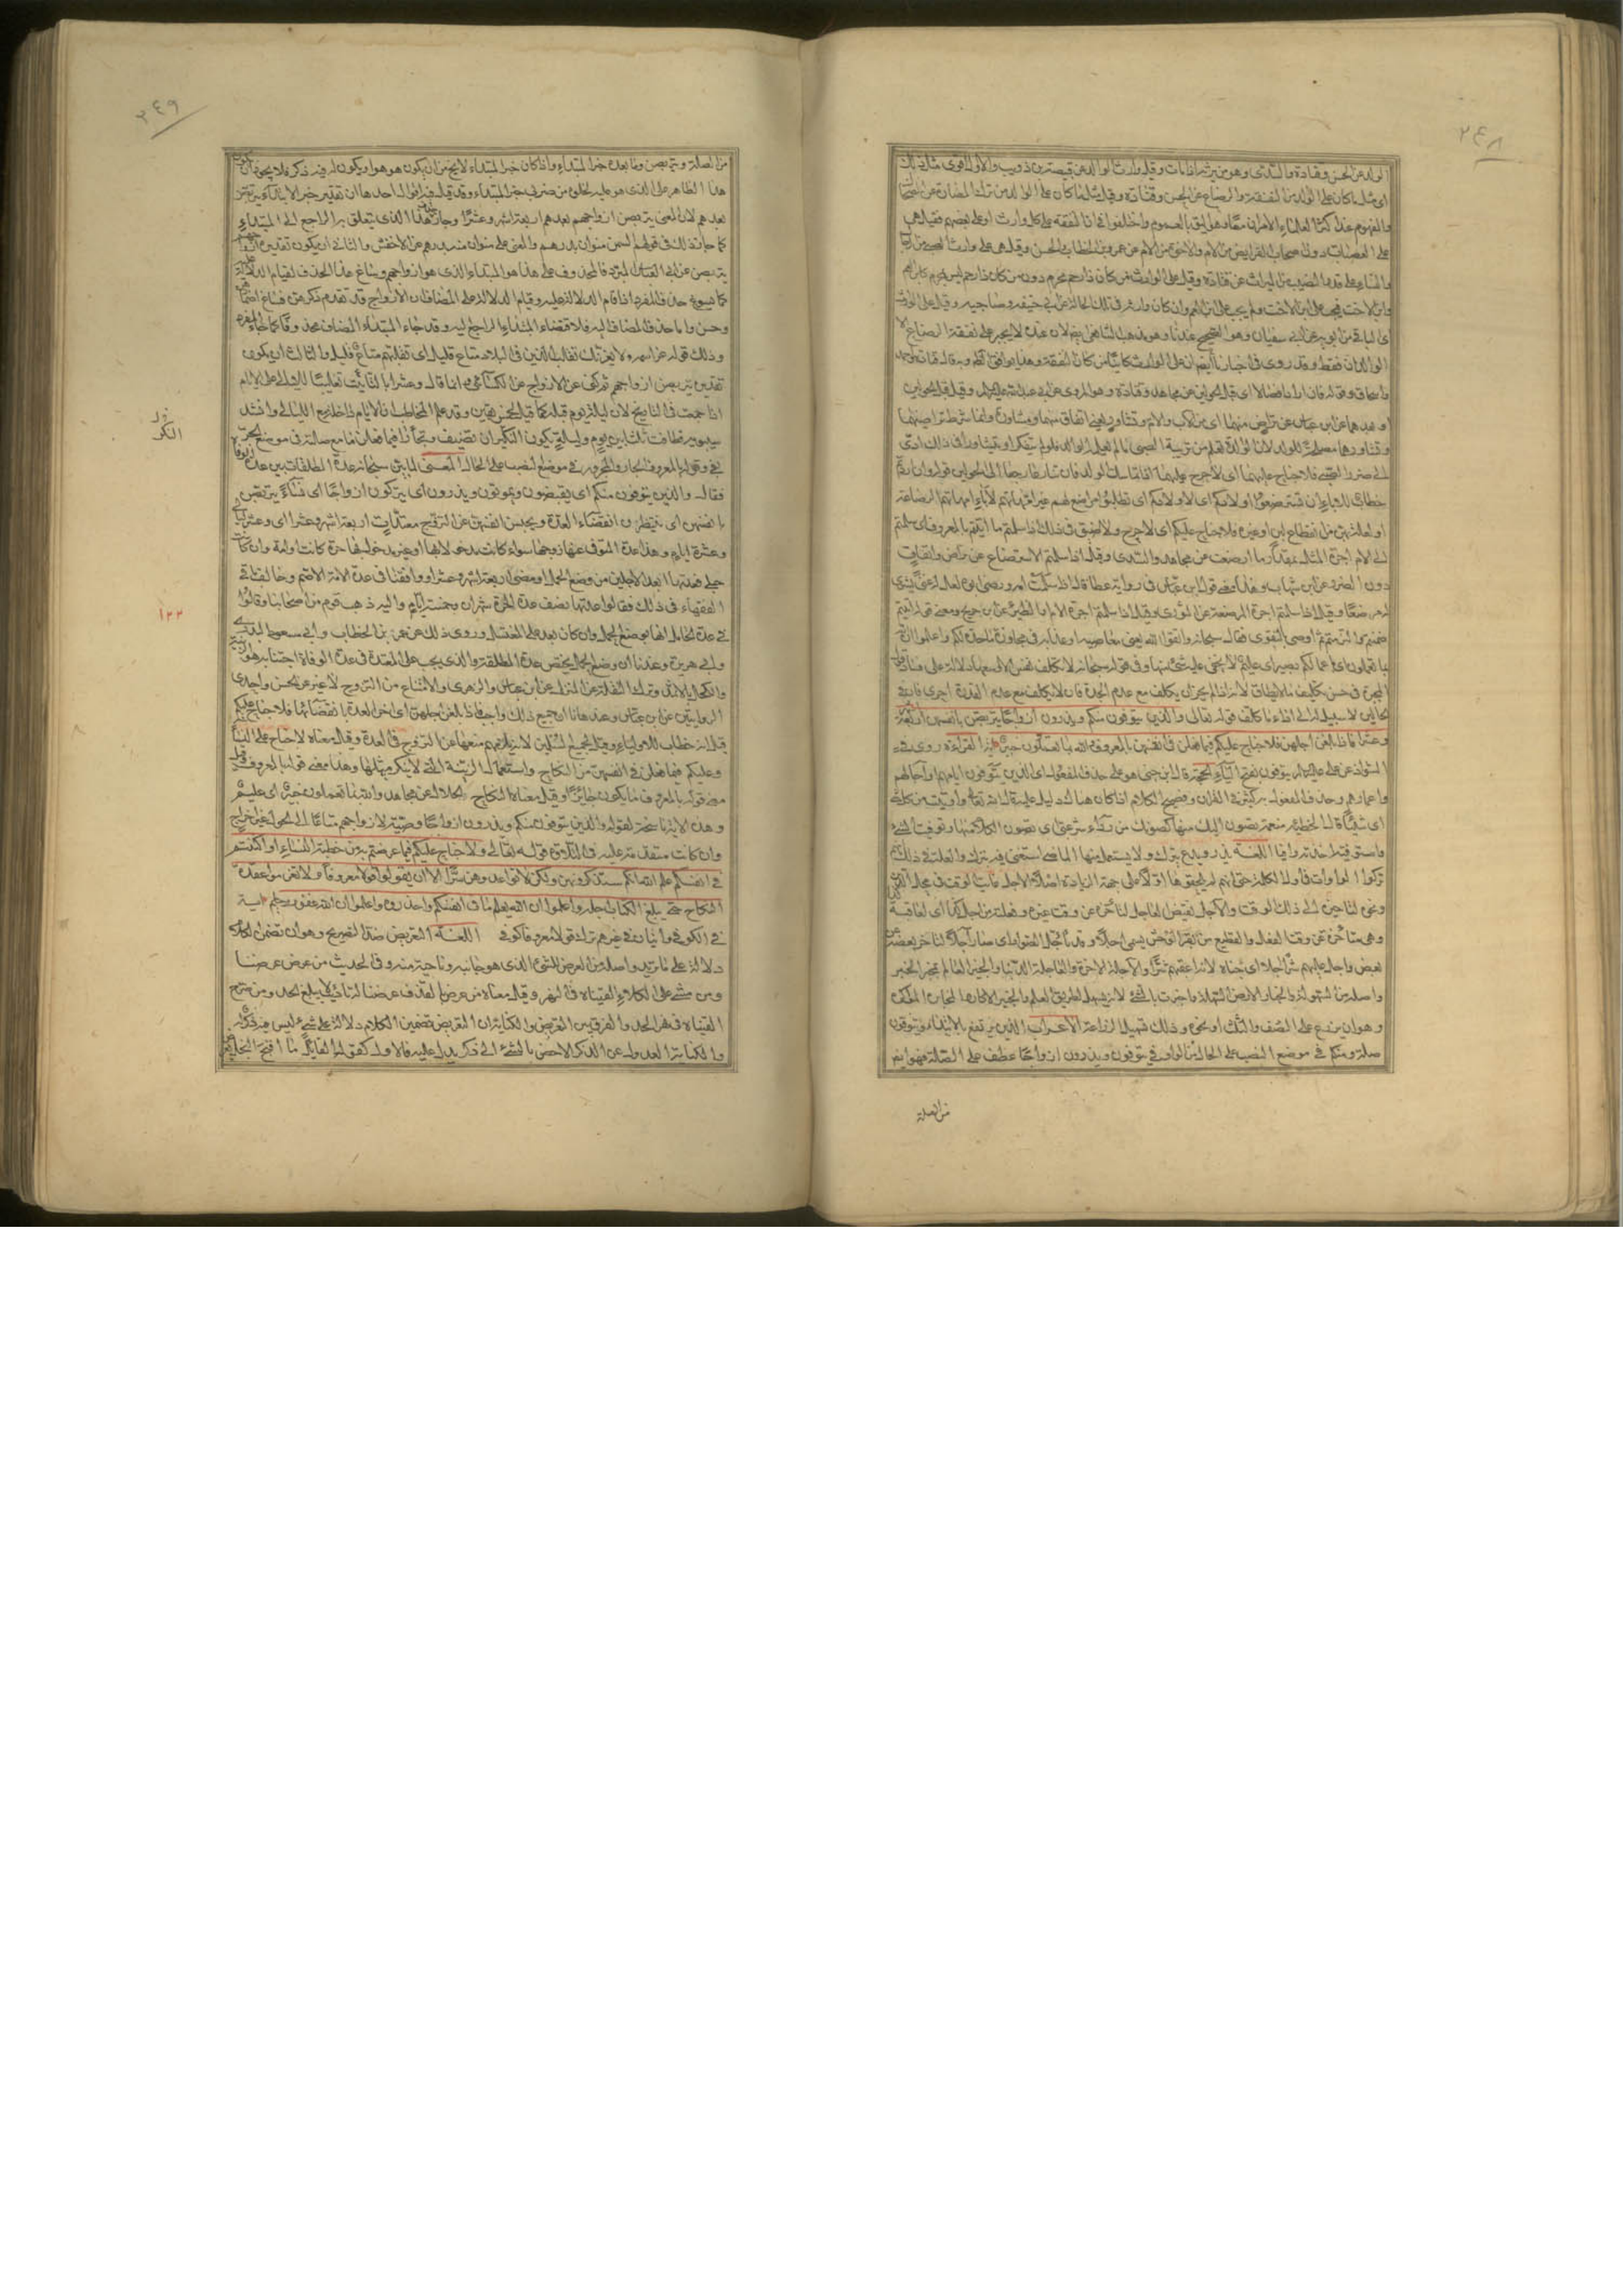 ٢٤٨
الوالد عن الحسن وقتادة والسدي وهو من يرثه اذا مات وقيل وارث الوالد عن قبيصة بن ذويب والاول اقوى مثل ذلك
اى مثل ما كان على الوالد من النفقة والرضاع عن الحسن وقتادة وقيل مثل ما كان على الوالد من ترك المضارة عن الضحاك
والمفهوم عند اكثر العلماء الامران معا وهو اليق بالعموم واختلفوا فى ان النفقة على كل وارث او على بعضهم فقيل هى
على العصبات دون اصحاب الفرايض من الام والاخوة من الام عن عمر بن الخطاب والحسن وقيل هى على وارث الصبى من الرجال
والنساء على قدر النصيب من الميراث عن قتادة وقيل على الوارث ممن كان ذا رحم محرم دون من كان ذا رحم ليس بمحرم كابن العم
وابن الاخت فيجب على ابن الاخت ولم يجب على ابن العم وان كان وارثه فى تلك الحالة عن ابى حنيفه وصاحبيه وقيل على الوارث
اى الباقى من ابويه عن سفيان وهو الصحيح عندنا وهو مذهب الشافعى ايضا لان عنده لا يجبر على نفقة الرضاع الا
الوالدان فقط وقد روى فى اخبارنا ايضا ان على الوارث كائنا من كان النفقة وهذا يوافق الظاهر وبه قال
وقوله فان ارادا فصالا اى قبل الحولين عن مجاهد وقتادة وهو المروى عن ابى عبد الله عليه السلام وقيل قبل الحولين
او بعدهما عن ابن عباس عن تراض منهما اى من الاب والام وتشاور يعنى اتفاق منهما ومشاورة وانما شرط تراضيهما
وتشاورهما مصلحة للولد لان الوالدة تعلم من تربية الصبى ما لا يعلمه الوالد فلو لم يتفكرا ويتشاورا فى ذلك ادى
الى ضرر الصبى فلا جناح عليهما اى لا حرج عليهما اذا تماسك الولد فان تنازعا رجعا الى الحولين قوله وان اردتم
خطاب للاباء ان تسترضعوا اولادكم اى لاولادكم اى تطلبوا لهم مراضع غير امهاتهم لاباء امهاتهم الرضاعة
او لعلة بهن من انقطاع لبن او غيره فلا جناح عليكم اى لا حرج ولا ضيق فى ذلك اذا سلمتم ما اتيتم بالمعروف اى سلمتم
الى الام اجرة المثل بمقدار ما ارضعت عن مجاهد والسدى وقيل اذا سلمتم الاسترضاع عن تراض واتفاق
دون الضرر عن ابن شهاب وهذا معنى قول ابن عباس فى رواية عطا قال اذا سلمت امه ورضى ابوه لعل له غنى يشترى
له مرضعا وقيل اذا سلمتم اجرة المرضعة عن الثورى وقيل اذا سلمتم اجرة الام او الظئر عن ابن جريج ومعنى قوله اتيتم
ضمنتم والتزمتم ثم اوصى بالتقوى فقال سبحانه واتقوا الله يعنى معاصيه او عذابه فى مجاوزة ما حده لكم واعلموا ان الله
بما تعملون اى باعمالكم بصير اى عليم لا يخفى عليه شئ منها وفى قوله سبحانه لا تكلف نفس الا وسعها دلالة على فساد قول
المجبرة فى حسن تكليف ما لا يطاق لانه اذا لم يجز ان يكلف مع عدم الجدة فان لا يكلف مع عدم القدرة احرى فان فى
الحالين لا سبيل له الى اداء ما كلف قوله تعالى والذين يتوفون منكم ويذرون ازواجا يتربصن بانفسهن اربعة
وعشرا فاذا بلغن اجلهن فلا جناح عليكم فيما فعلن فى انفسهن بالمعروف والله بما تعملون خبير القراءة روى فى
الشواذ عن على عليه السلام يتوفون بفتح الياء الحجة قال ابن جنى هو على حذف المفعول اى الذين يتوفون ايامهم واجالهم
واعمارهم وحذف المفعول به كثير فى القران وفصيح الكلام اذا كان هناك دليل عليه قال الله تعالى واوتيت من كل شئ
اى شيئا قال الحطيئة منعمة تصون اليك منها كصونك من رداء شرعبى اى تصون الكلام منها وتوفيت الشئ
واستوفيته اخذته وافيا اللغة يذر ويدع يترك ولا يستعمل منهما الماضى استغنى فيه بترك والعلة فى ذلك انهم
تركوا الواوات فى اول الكلمة حتى انهم لم يلحقوها اولا على جهة الزيادة اصلا والاجل غاية الوقت فى محل الدين
ونحوه لتاخيره الى ذلك الوقت والآجل نقيض العاجل لتاخره عن وقت غيره وفعلته من اجل كذا اى لعاقبة
وهى متاخرة عن وقت الفعل والقطيع من بقر الوحش يسمى اجلا وقد تاجل الصوار اى صار اجلا لتاخر بعضه عن
بعض واجل عليهم شرا اجلا اى جناه لانه اعقبهم شرا والآجلة الآخرة والعاجلة الدنيا والخبير العالم بمخبر الخبر
واصله من السهولة والخبار الارض السهلة واخبرت بالشئ لانه تسهيل لطريق العلم به والخبير الاكار والمخابرة المواكرة
وهو ان يزرع على النصف والثلث او نحوه وذلك لتسهيل الزراعة الاعراب الذين يرتفع بالابتداء ويتوفون
صلته ومنكم فى موضع النصب على الحال من الواو فى يتوفون ويذرون ازواجا عطف على الصلة فهو ايضا
من الصلة
٢٤٩
من الصلة ويتربصن وما بعده خبر المبتداء واذا كان خبر المبتداء لا يخلو من ان يكون هو هو او يكون له فيه ذكر فلا يجوز ان يكون
هذا الظاهر على الذى هو عليه لخلوه من ضربى خبر المبتداء وقد قيل فيه اقوال احدها ان تقدير خبر الابتداء يتربصن
بعدهم لان المعنى يتربصن ازواجهم بعدهم اربعة اشهر وعشرا وجاز حذف هذا الذى يتعلق به الراجع الى المبتداء
كما جاز ذلك فى قولهم السمن منوان بدرهم والمعنى على منوان منه بدرهم عن الاخفش والثانى ان يكون تقديره ازواجهم
يتربصن عن ابى العباس المبرد فالمحذوف على هذا هو المبتداء الذى هو ازواجهم وساغ هذا الحذف لقيام الدلالة عليه
كما يسوغ حذف المفرد اذا قام الدلالة عليه وقيام الدلالة على المضاف ان الازواج قد تقدم ذكرهن فساغ اضمارهن
وحسن واما حذف المضاف اليه فلاقتضاء المبتداء الراجع اليه وقد جاء المبتداء المضاف محذوفا كما جاء المفرد
وذلك قوله عز اسمه لا يغرنك تقلب الذين كفروا فى البلاد متاع قليل اى تقلبهم متاع قليل والثالث ان يكون
تقديره يتربصن ازواجهم ثم كنى عن الازواج عن الكسائى وانما قال وعشرا بالتأنيث تغليبا لليالى على الايام
اذا اجتمعت فى التاريخ لان ليلة كل يوم قبله كما قيل لخمس بقين وقد علم المخاطب ان الايام داخلة مع الليالى وانشد
سيبويه فطافت ثلاثا بين يوم وليلة يكون النكير ان تضيف وتجارا وفيما فعلن ما مع صلته فى موضع الجر
بفى وقوله بالمعروف الجار والمجرور فى موضع النصب على الحال المعنى لما بين سبحانه عدة المطلقات بين عدة الوفاة
فقال والذين يتوفون منكم اى يقبضون ويموتون ويذرون اى يتركون ازواجا اى نساء يتربصن
بانفسهن اى ينتظرن انقضاء العدة ويحبسن انفسهن عن التزويج معتدات اربعة اشهر وعشرا اى وعشر ليال
وعشرة ايام وهذه عدة المتوفى عنها زوجها سواء كانت مدخولا بها او غير مدخول بها حرة كانت او امة وان كانت
حبلى فعدتها ابعد الاجلين من وضع الحمل او مضى اربعة اشهر وعشرا ووافقنا فى عدة الامة الاصم وخالف باقى
الفقهاء فى ذلك فقالوا عدتها نصف عدة الحرة شهران وخمسة ايام واليه ذهب قوم من اصحابنا وقالوا
فى عدة الحامل انها بوضع الحمل وان كان بعد على المغتسل وروى ذلك عن عمر بن الخطاب وابى مسعود البدرى
وابى هريرة وعندنا ان وضع الحمل يختص عدة المطلقة والذى يجب على المعتدة فى عدة الوفاة اجتنابه هو الزينة
والكحل بالاثمد وترك النقلة عن المنزل عن ابن عباس والزهرى والامتناع من التزوج لا غير عن الحسن واحدى
الروايتين عن ابن عباس وعندنا ان جميع ذلك واجب فاذا بلغن اجلهن اى اخر العدة بانقضائها فلا جناح عليكم
قيل انه خطاب للاولياء وقيل لجميع المسلمين لانه يلزمهم منعها عن التزوج فى العدة وقيل معناه لا جناح على النساء
وعليكم فيما فعلن فى انفسهن من النكاح واستعمال الزينة التى لا ينكر مثلها وهذا معنى قوله بالمعروف وقيل
معنى قوله بالمعروف ما يكون جائزا وقيل معناه النكاح الحلال عن مجاهد والله بما تعملون خبير اى عليم
وهذه الاية ناسخة لقوله والذين يتوفون منكم ويذرون ازواجا وصية لازواجهم متاعا الى الحول غير اخراج
وان كانت متقدمة عليه فى التلاوة قوله تعالى ولا جناح عليكم فيما عرضتم به من خطبة النساء او اكننتم
فى انفسكم علم الله انكم ستذكرونهن ولكن لا تواعدوهن سرا الا ان تقولوا قولا معروفا ولا تعزموا عقدة
النكاح حتى يبلغ الكتاب اجله واعلموا ان الله يعلم ما فى انفسكم فاحذروه واعلموا ان الله غفور حليم اية
فى الكوفى وايتان فى غيرهم ترك قولا معروفا كوفى اللغة التعريض ضد التصريح وهو ان تضمن الكلام
دلالة على ما تريد واصله من العرض للشئ الذى هو جانبه وناحية منه وفى الحديث من عرض عرضنا
ومن مشى على الكلاء القيناه فى النهر وقيل معناه من عرض بالقذف عرضنا له بتاديب لا يبلغ الحد ومن صرح
القيناه فى نهر الحد والفرق بين التعريض والكناية ان التعريض تضمين الكلام دلالة على شئ ليس فيه ذكر له
والكناية العدول عن الذكر الاخص بالشئ الى ذكر يدل عليه فالاول كقول القايل ما اقبح البخل
١٢٢